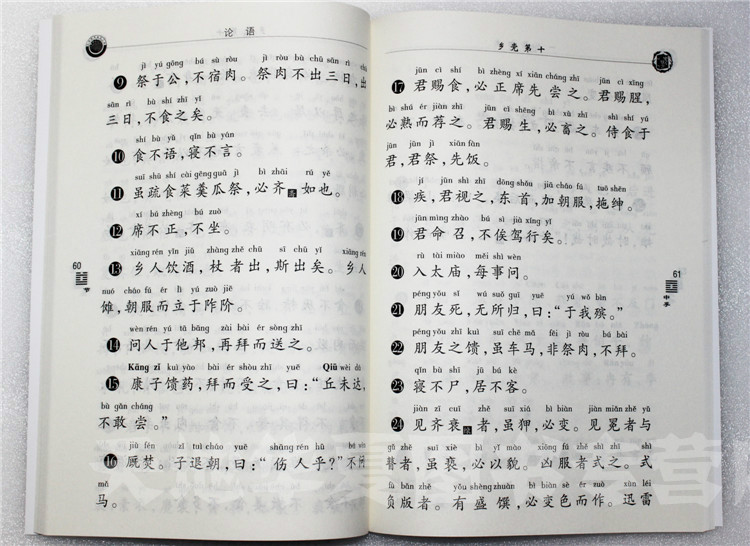 论语
jì yú gōng bú sù ròu jì ròu bù chū sān rì chū
9 祭于公，不宿肉。祭肉不出三日，出
sān rì bù shí zhī yǐ
三日，不食之矣。
shí bù yǔ qǐn bù yán
10 食不语，寝不言。
suī shū shí cài gēng guā jì bì zhāi rú yě
11 虽疏食菜羹瓜祭，必齐 如也。
xí bú zhèng bú zuò
12 席不正，不坐。
xiāng rén yǐn jiǔ zhàng zhě chū sī chū yǐ xiāng rén
13 乡人饮酒，杖者出，斯出矣。乡人
nuó cháo fú ér lì yú zuò jiē
傩，朝服而立于阼阶。
wèn rén yú tā bāng zài bài ér sòng zhī
14 问人于他邦，再拜而送之。
Kāng zǐ kuì yào bài ér shòu zhī yuē Qiū wèi dá
15 康子馈药，拜而受之，曰：“丘未达，
bù gǎn cháng
不敢尝。”
jiù fén zǐ tuì cháo yuē shāng rén hū bú
16 厩焚。子退朝，曰：“伤人乎？”不
mǎ
马。
60
乡党第十
jūn cì shí bì zhèng xí xiān cháng zhī jūn cì xīng
17 君赐食，必正席先尝之。君赐腥，
bì shú ér jiàn zhī jūn cì shēng bì xù zhī shì shí yú
必熟而荐之。君赐生，必畜之。侍食于
jūn jūn jì xiān fàn
君，君祭，先饭。
jí jūn shì zhī dōng shǒu jiā cháo fú tuō shēn
18 疾，君视之，东首，加朝服，拖绅。
jūn mìng zhào bú sì jià xíng yǐ
19 君命召，不俟驾行矣。
rù tài miào měi shì wèn
20 入太庙，每事问。
péng yǒu sǐ wú suǒ guī yuē yú wǒ bìn
21 朋友死，无所归，曰：“于我殡。”
péng yǒu zhī kuì suī chē mǎ fēi jì ròu bú bài
22 朋友之馈，虽车马，非祭肉，不拜。
qǐn bù shī jū bú kè
23 寝不尸，居不客。
jiàn zī cuī zhě suī xiá bì biàn jiàn miǎn zhě yǔ
24 见齐衰 者，虽狎，必变。见冕者与
gǔ zhě suī xiè bì yǐ mào xiōng fú zhě shì zhī shì
瞽者，虽亵，必以貌。凶服者式之。式
fù bǎn zhě yǒu shèng zhuàn bì biàn sè ér zuò xùn léi
负版者。有盛馔，必变色而作。迅雷
61